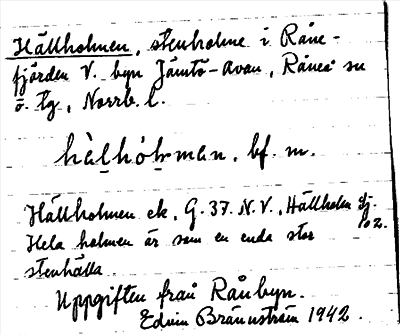 Hällholmen, stenholme i Råne-
fjärden V. byn Jämtö-Avan, Råneå sn
ö. tg, Norrb. l.
hälhòḷman. bf. m.
Hällholmen ek. G. 37. N.V., Hällholm Sj.
Hela holmen är som en enda stor
stenhälla.
Uppgiften från Rånbyn.
Edvin Brännström 1942.